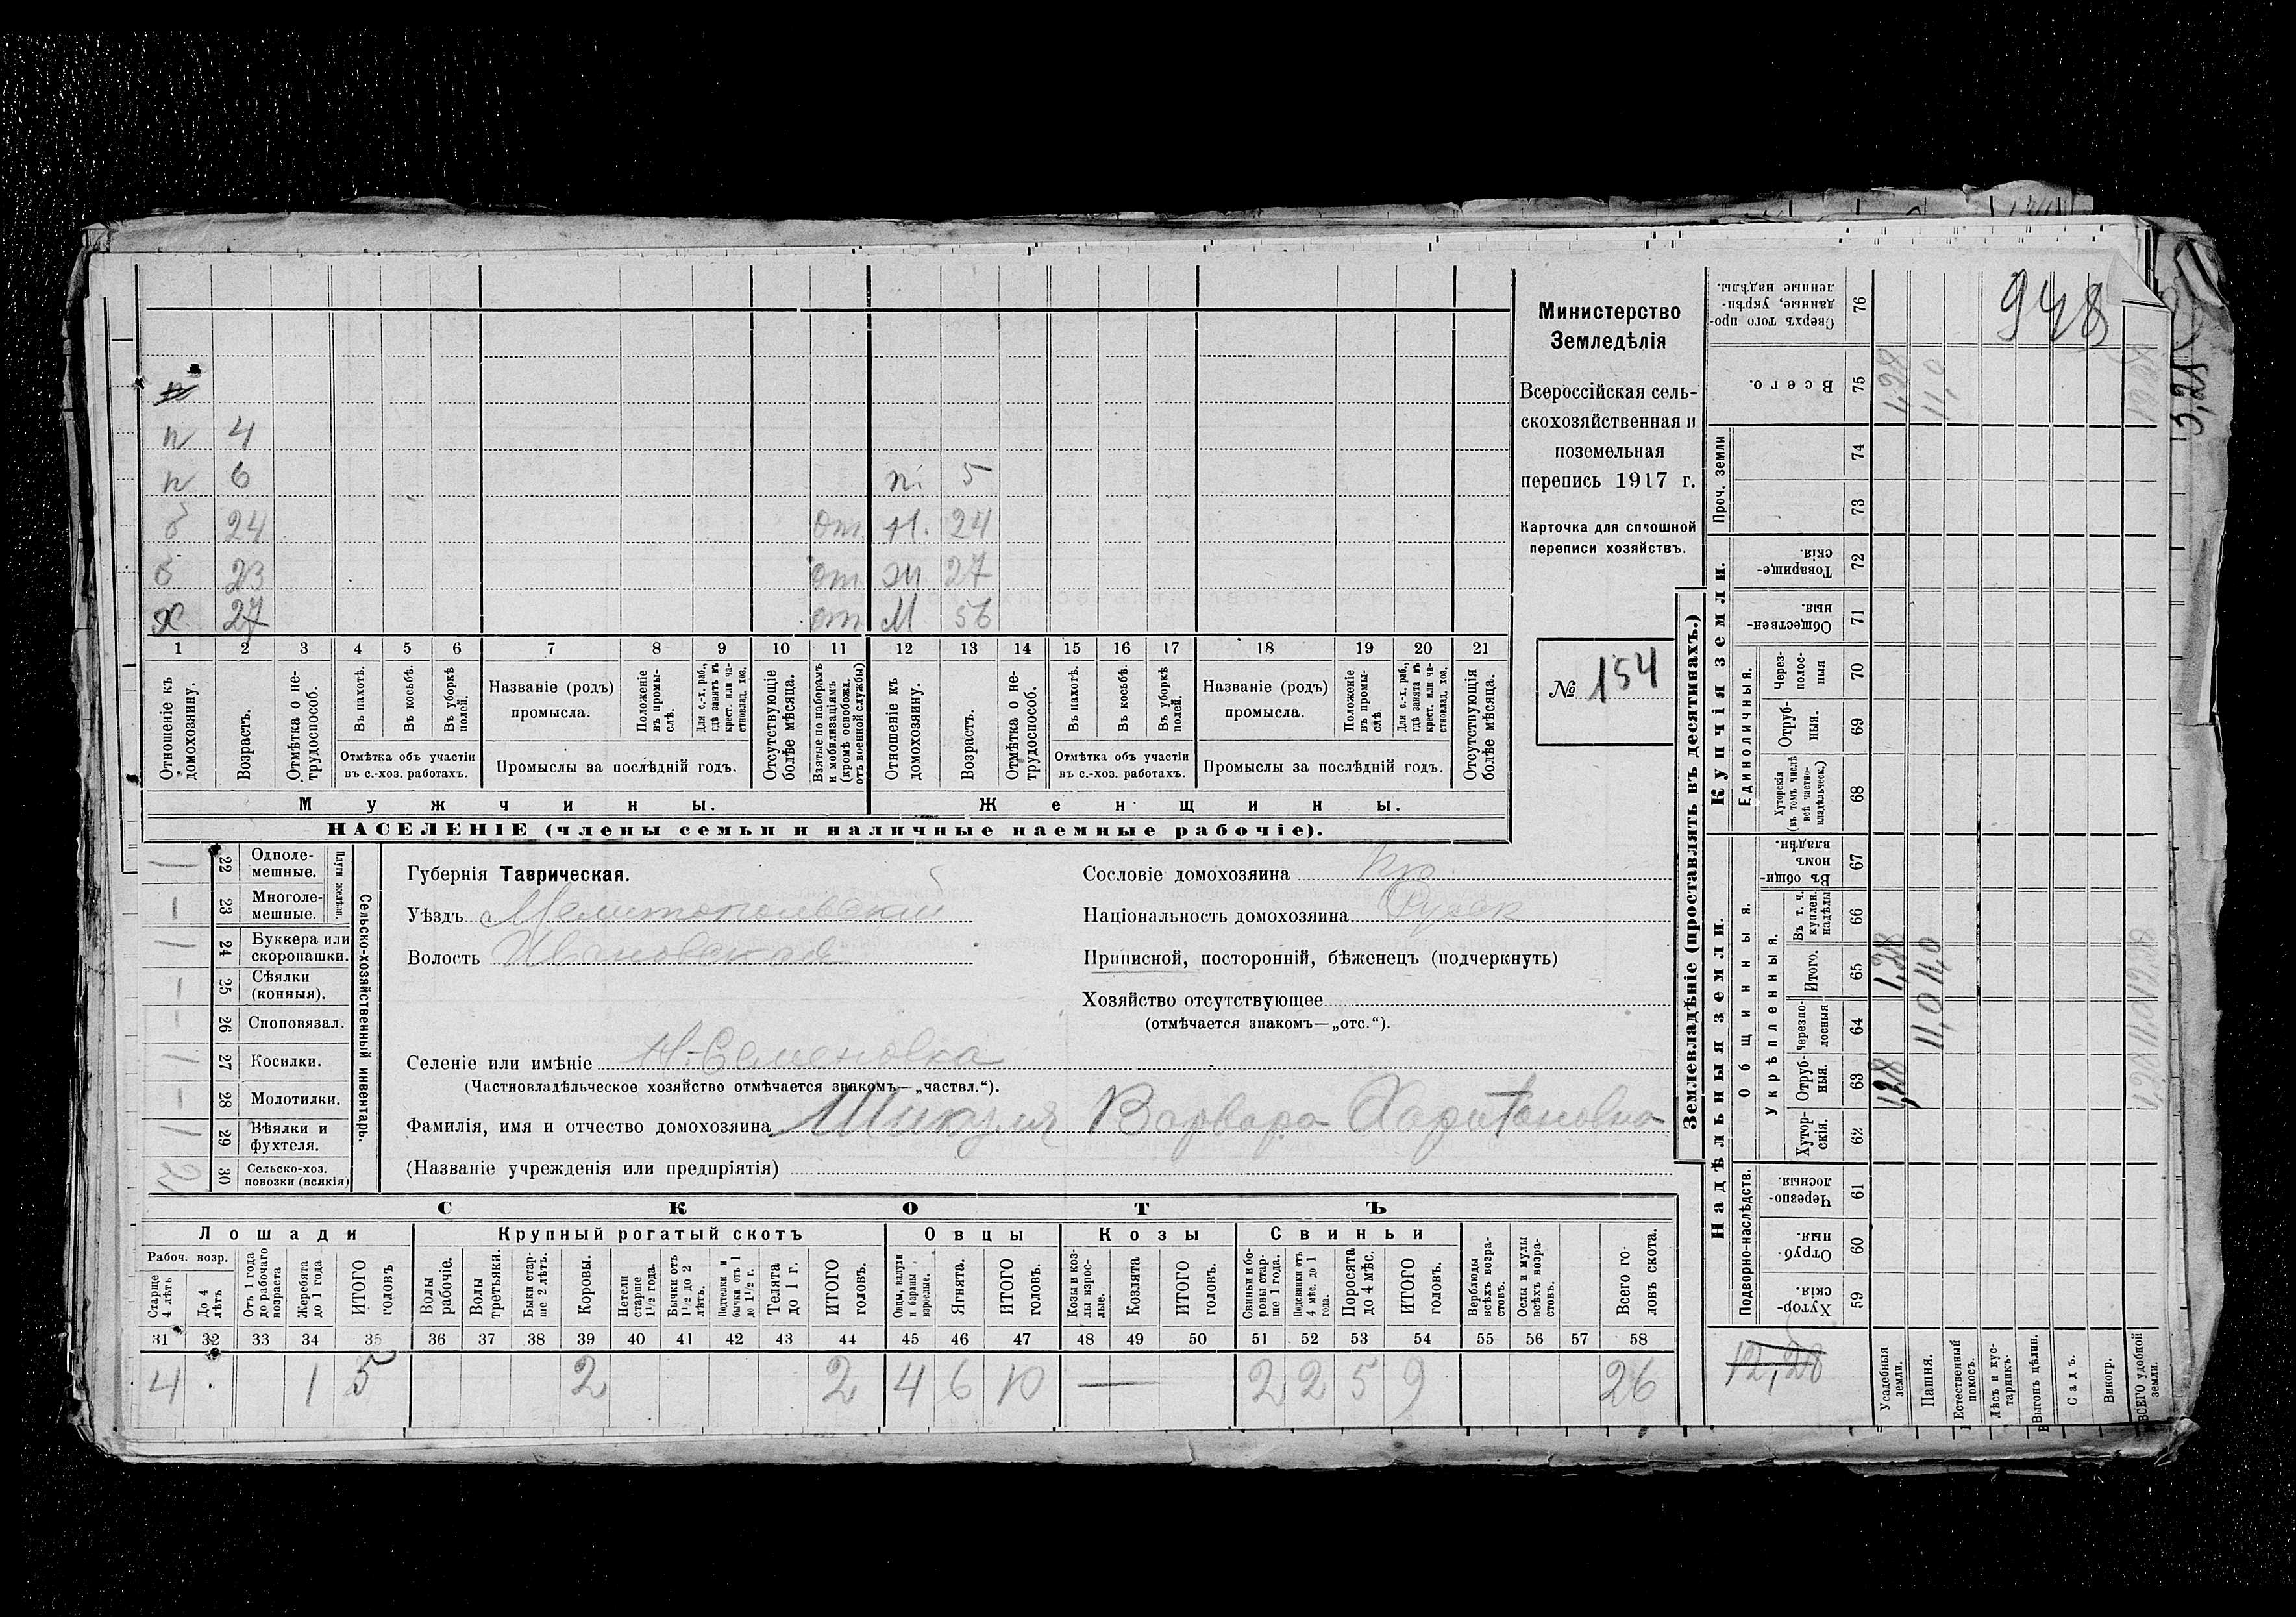 948
5,28
п
п 4
п 6 п. 5
б 24 от. М. 24
б 23 от. Ж 27
Х. 27 от М 56
1 2 3 4 5 6 7 8 9 10 11 12 13 14 15 16 17 18 19 20 21
Отношеніе къ домохозяину.
Возрастъ.
Отмѣтка о нетрудоспособ.
Въ пахотѣ.
Въ косьбѣ.
Въ уборкѣ полей.
Отмѣтка объ участіи въ с.-хоз. работахъ.
Названіе (родъ) промысла.
Положеніе въ промыслѣ.
Для с.-х. раб., гдѣ занятъ въ крест. или частновлад. хоз.
Промыслы за послѣдній годъ.
Отсутствующіе болѣе мѣсяца.
Взятые по наборамъ и мобилизаціямъ (кромѣ освобожд. отъ военной службы)
Отношеніе къ домохозяину.
Возрастъ.
Отмѣтка о нетрудоспособ.
Въ пахотѣ.
Въ косьбѣ.
Въ уборкѣ полей.
Отмѣтка объ участіи въ с.-хоз. работахъ.
Названіе (родъ) промысла.
Положеніе въ промыслѣ.
Для с.-х. раб., гдѣ занята въ крест. или частновлад. хоз.
Промыслы за послѣдній годъ.
Отсутствующія болѣе мѣсяца.
Мужчины. Женщины.
НАСЕЛЕНІЕ (члены семьи и наличные наемные рабочіе).
Министерство
Земледѣлія
Всероссійская сель-
скохозяйственная и
поземельная
перепись 1917 г.
Карточка для сплошной
переписи хозяйствъ.
№ 154
Сельско-хозяйственный инвентарь
Плуги желѣзн.
22 Однолемешные.
23 Многолемешные.
24 Буккера или скоропашки.
25 Сѣялки (конныя).
26 Сноповязал.
27 Косилки.
28 Молотилки.
29 Вѣялки и фухтеля.
30 Сельско-хоз. повозки (всякія) 2
Губернія Таврическая.
Уѣздъ Мелитопольскій
Волость Ивановская
Сословіе домохозяина кр.
Національность домохозяина Русак
Приписной, посторонній, бѣженецъ (подчеркнуть)
Хозяйство отсутствующее
(отмѣчается знакомъ—„отс.“).
Селеніе или имѣніе Н-Семеновка
(Частновладѣльческое хозяйство отмѣчается знакомъ—„частвл.“).
Фамилія, имя и отчество домохозяина Шикуля Варвара Харитоновна
(Названіе учрежденія или предпріятія)
СКОТЪ
Лошади Крупный рогатый скотъ Овцы Козы Свиньи
Рабоч. возр.
Старше 4 лѣтъ
До 4 лѣтъ
Отъ 1 года до рабочаго возраста
Жеребята до 1 года
ИТОГО головъ
Волы рабочіе.
Волы третьяки.
Быки старше 2 лѣтъ.
Коровы.
Нетели старше 1½ года.
Бычки отъ 1½ до 2 лѣтъ.
Подтелки и бычки отъ 1 до 1½ г.
Телята до 1 г.
ИТОГО головъ.
Овцы, валухи и бараны взрослые.
Ягнята.
ИТОГО головъ.
Козы и козлы взрослые.
Козлята
ИТОГО головъ.
Свиньи и боровы старше 1 года.
Подсвинки отъ 4 мѣс. до 1 года.
Поросята до 4 мѣс.
ИТОГО головъ.
Верблюды всѣхъ возрастовъ.
Ослы и мулы всѣхъ возрастовъ.
Всего головъ скота.
31 32 33 34 35 36 37 38 39 40 41 42 43 44 45 46 47 48 49 50 51 52 53 54 55 56 57 58
4 1 5 2 2 4 6 10 — 2 2 5 9 26
Землевладѣніе (проставлять въ десятинахъ.)
Купчія земли.
Надѣльныя земли.
Сверхъ того проданные, укрѣпленные надѣлы. 76
Всего. 75 1,28 11,0
Проч. земли 74
73
Товарищескія. 72
Общественныя. 71
Единоличныя.
Черезполосныя 70
Отрубныя. 69
Хуторскія (въ томъ числѣ всѣ частновладѣльческ.) 68
Общинныя.
Въ общинномъ владѣн. 67
Укрѣпленныя.
Въ т. ч. куплен. надѣлы 66
Итого. 65 1,28 11,0
Черезполосныя 64 11,0
Отрубныя. 63 1,28
Хуторскія. 62
Подворно-наслѣдств.
Черезполосныя. 61
Отрубныя. 60
Хуторскія. 59
12,28
Усадебныя земли.
Пашня.
Естественный покосъ.
Лѣсъ и кустарникъ.
Выгонъ цѣлин.
Садъ.
Виногр.
ВСЕГО удобной земли.